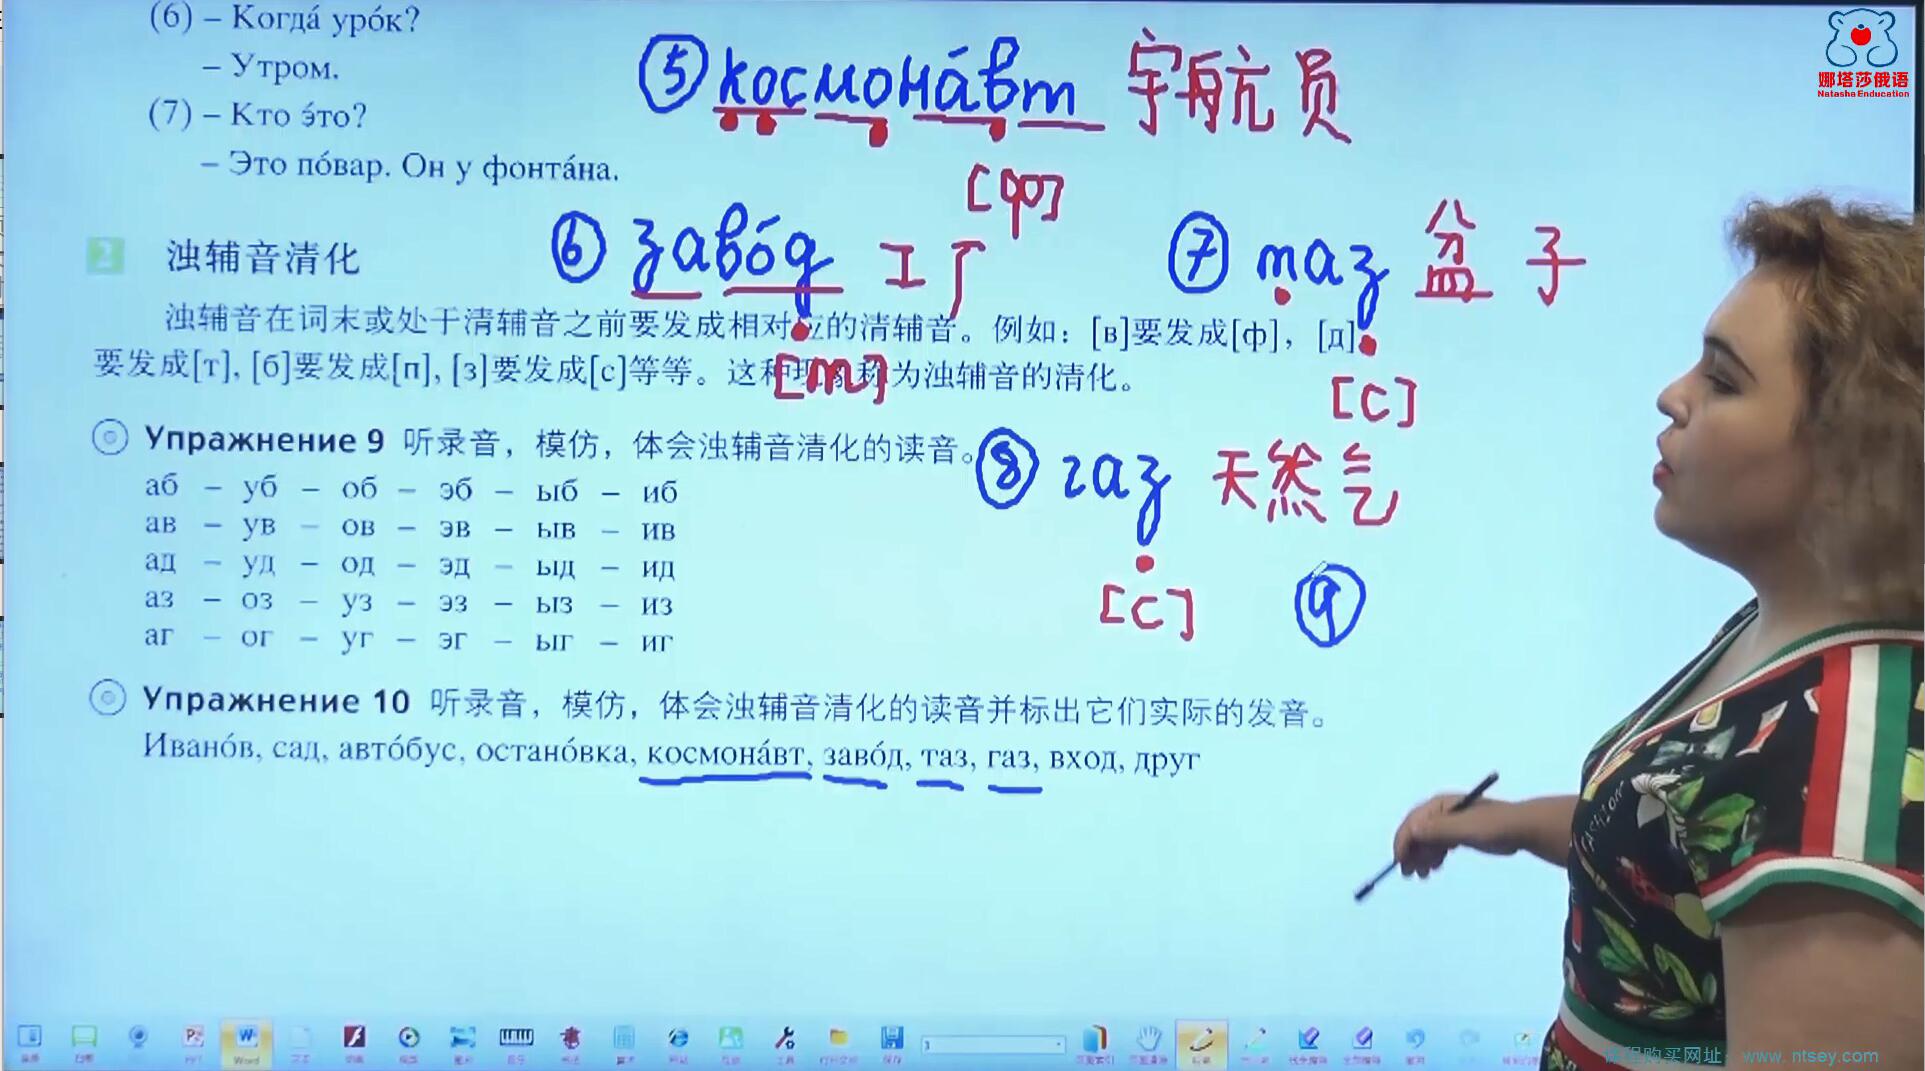 (6) – Когда́ уро́к?
– Утром.
(7) – Кто э́то?
– Это по́вар. Он у фонта́на.
⑤ космона́вт 宇航员
[ф]
⑥ заво́д 工厂
⑦ таз 盆子
2 浊辅音清化
浊辅音在词末或处于清辅音之前要发成相对应的清辅音。例如：[в]要发成[ф]，[д]
要发成[т], [б]要发成[п], [з]要发成[с]等等。这种现象称为浊辅音的清化。
[т]
[с]
Упражнение 9 听录音，模仿，体会浊辅音清化的读音。
аб – уб – об – эб – ыб – иб
ав – ув – ов – эв – ыв – ив
ад – уд – од – эд – ыд – ид
аз – оз – уз – эз – ыз – из
аг – ог – уг – эг – ыг – иг
⑧ газ 天然气
[с]
⑨
Упражнение 10 听录音，模仿，体会浊辅音清化的读音并标出它们实际的发音。
Ивано́в, сад, авто́бус, остано́вка, космона́вт, заво́д, таз, газ, вход, друг
娜塔莎俄语
Natasha Enducation
FASHION
Word
课程购买网址：www.ntsey.com